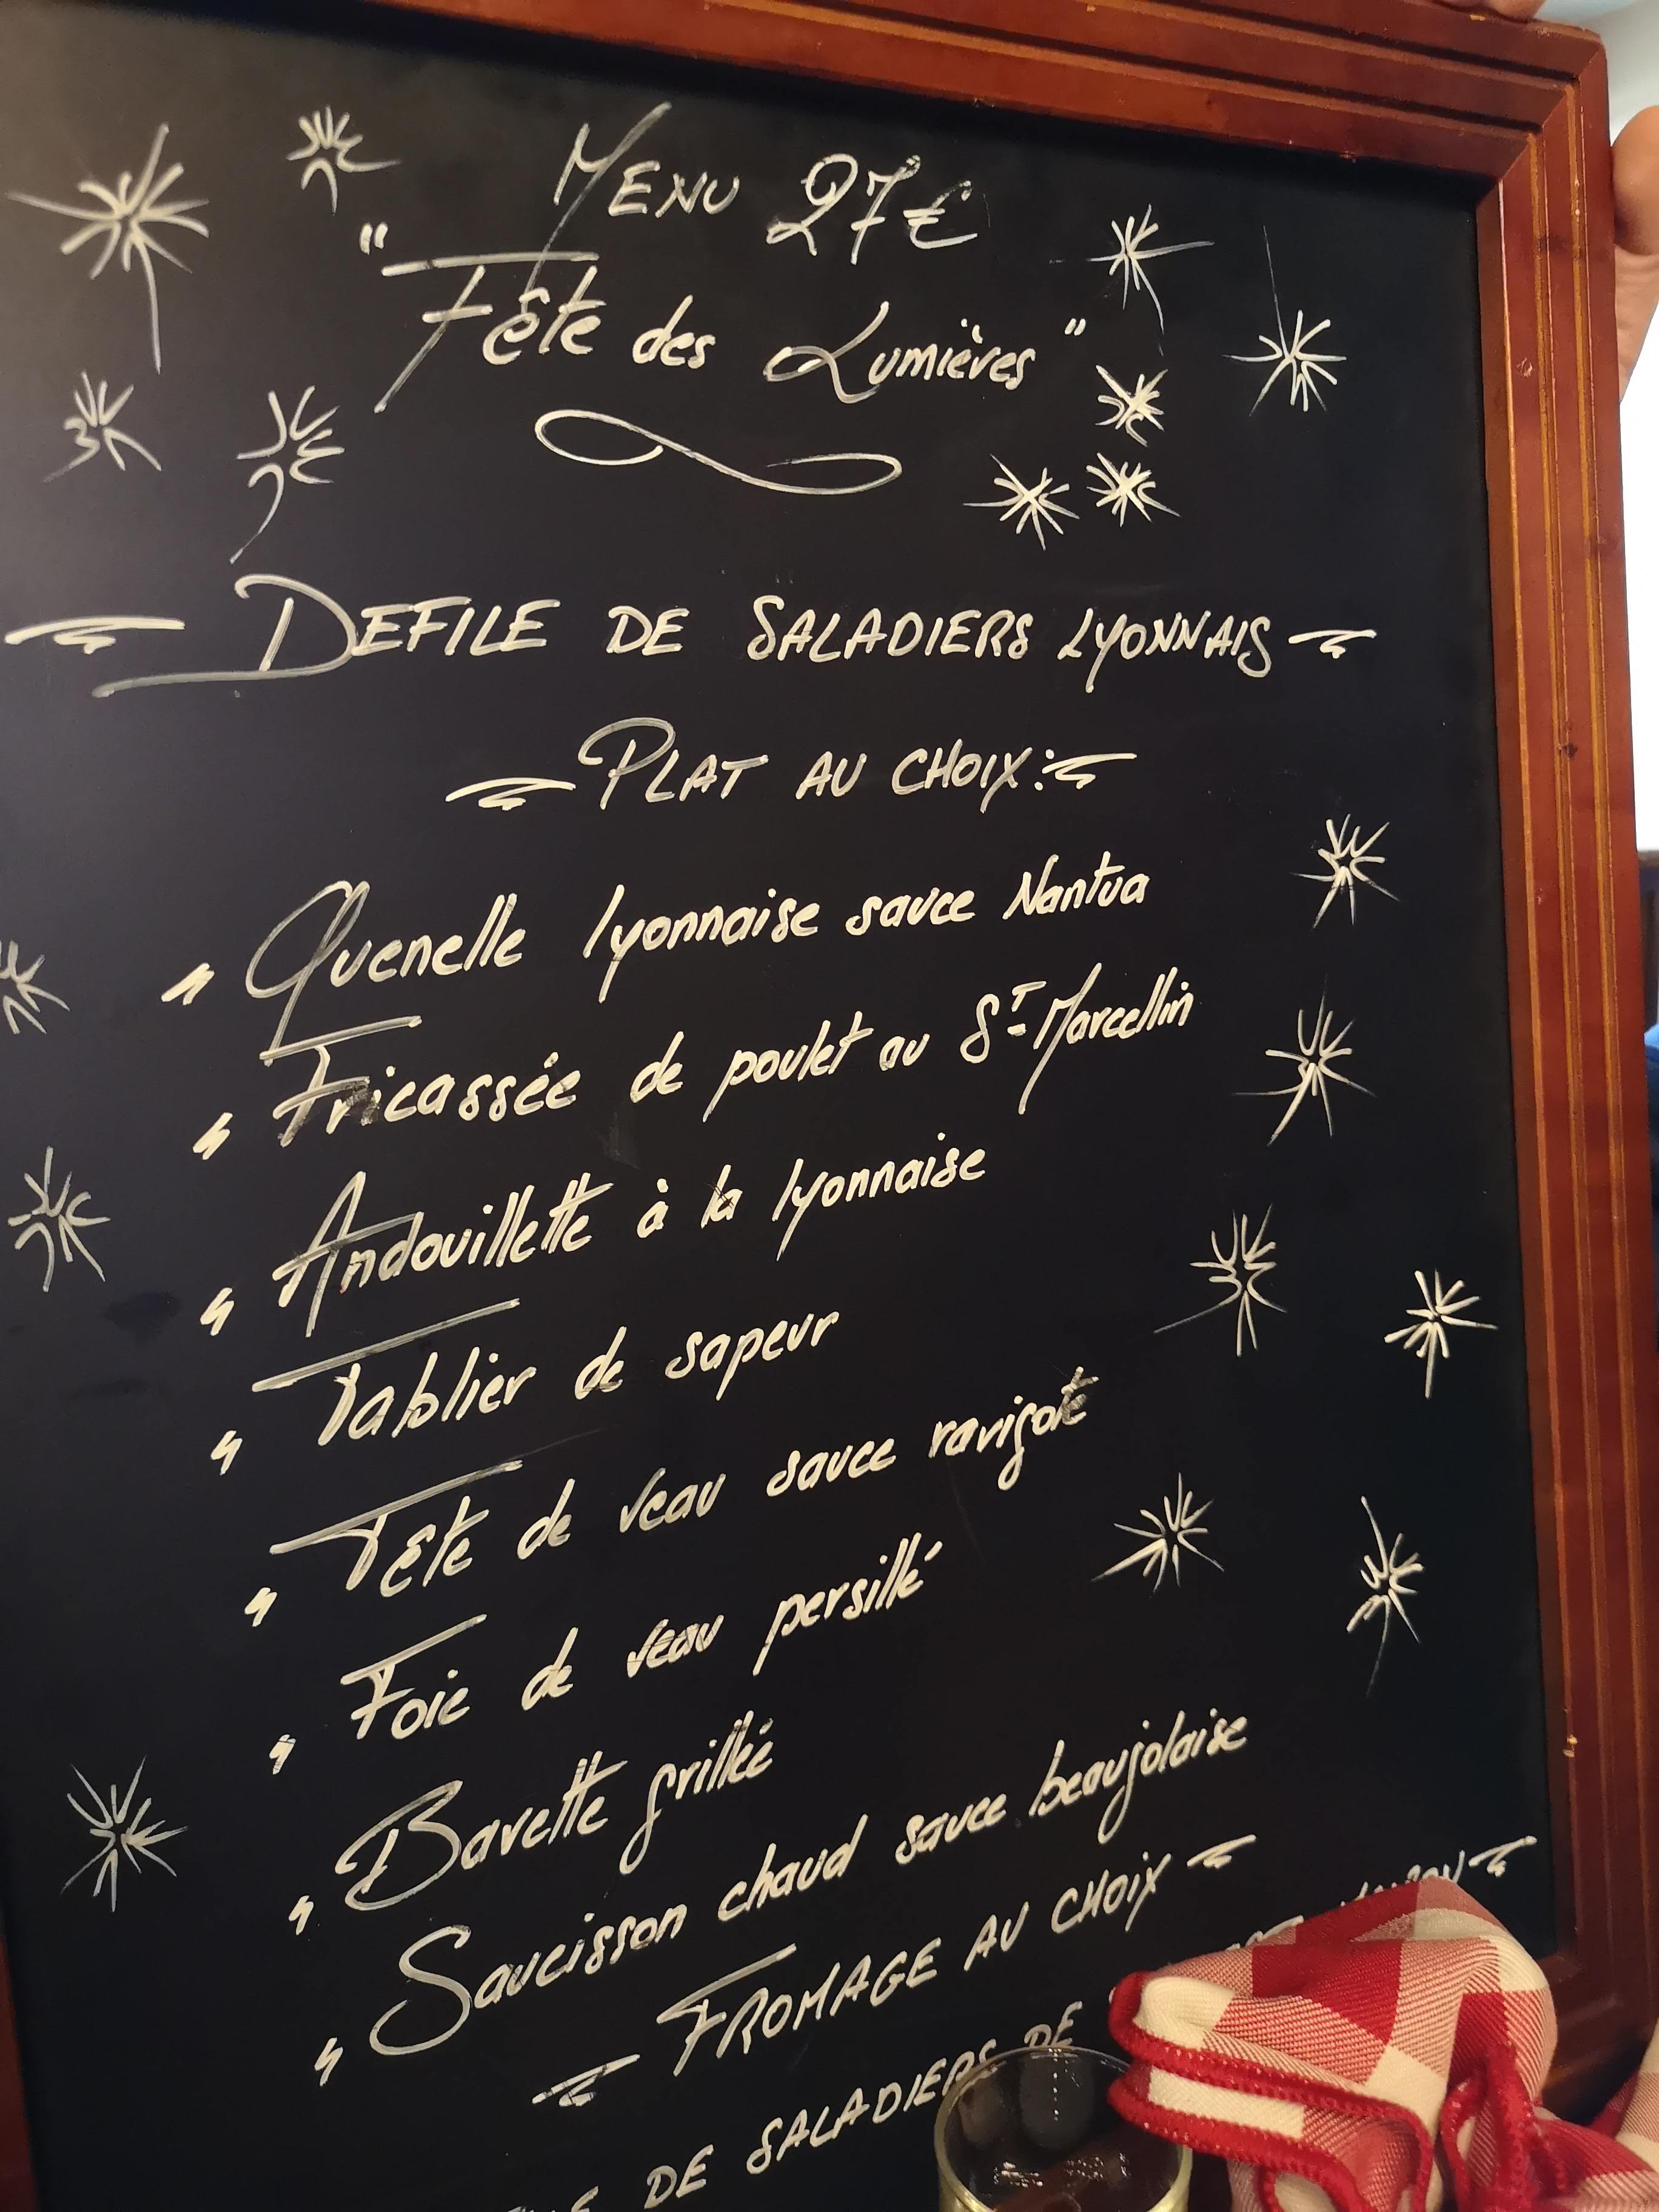 MENU 27€
"Fête des Lumières"
DEFILE DE SALADIERS LYONNAIS
PLAT AU CHOIX:
Quenelle lyonnaise sauce Nantua
Fricassée de poulet au ST-Marcellin
Andouillette à la lyonnaise
Tablier de sapeur
Tête de veau sauce ravigote
Foie de veau persillé
Bavette grillée
Saucisson chaud sauce beaujolaise
FROMAGE AU CHOIX
DE SALADIERS DE